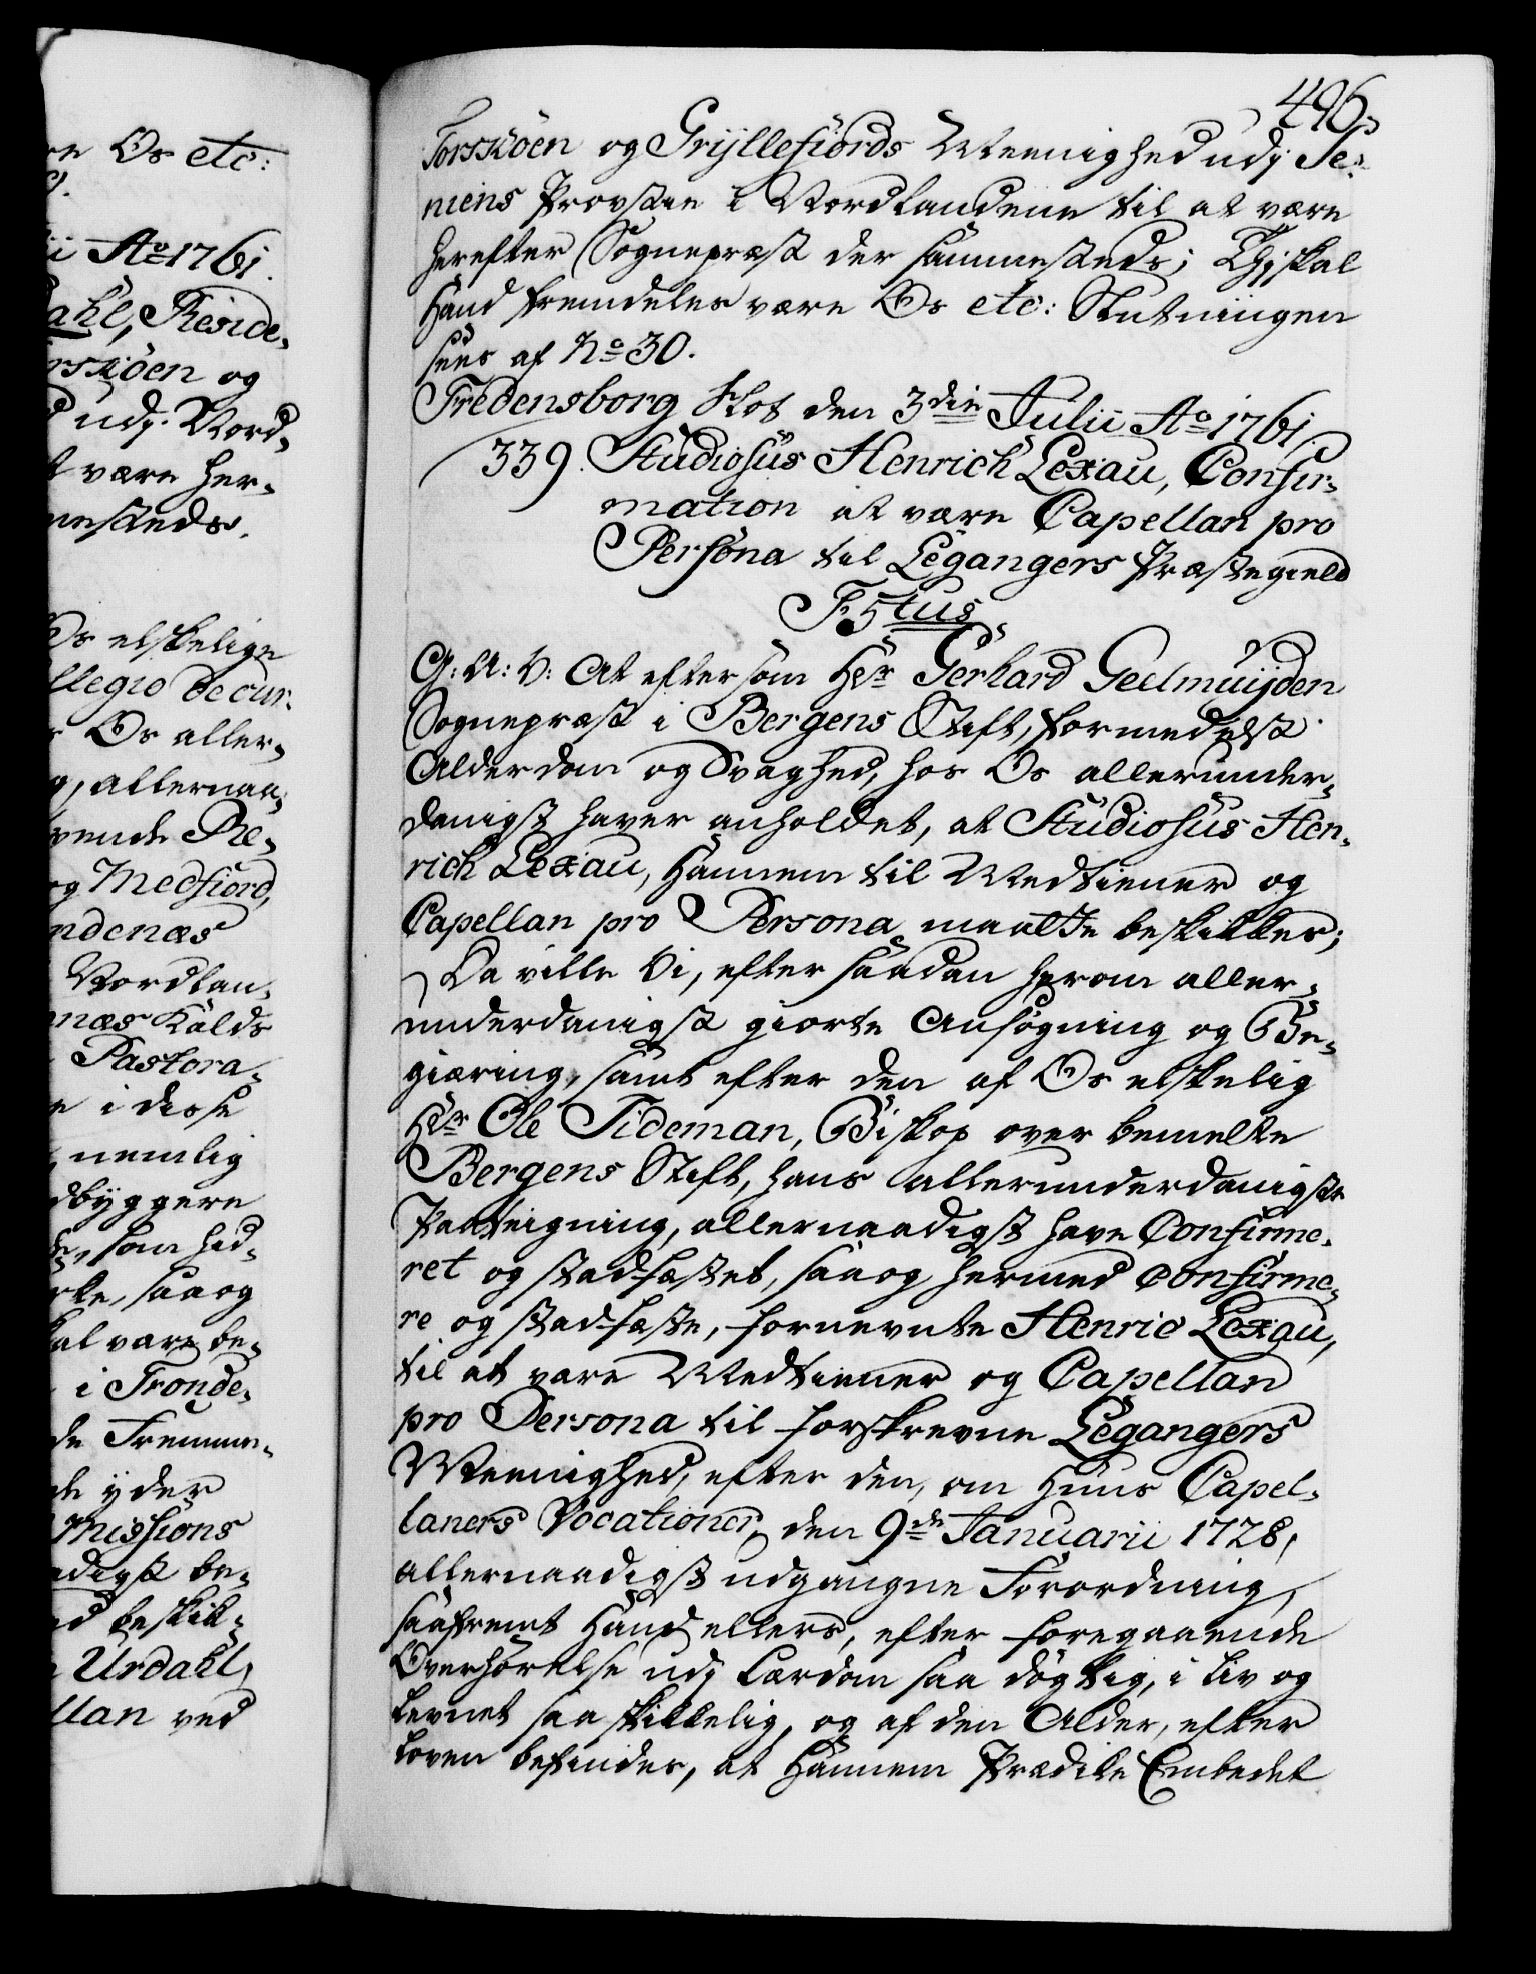 re Os etc:
ii Ao 1761.
ahl, Reside-
rsköen og
d udj Nord-
t være her-
mesteds.
Os elskelige
llegio de cur-
Os aller-
allernaa-
vende Re-
og Medfiord,
ndenæs
Nordlan-
næs Kalds
Pastora-
e i disse
nemlig
dbÿggere
som hid-
rke, saa og
al være be-
i Tronde-
de Fremme-
de ÿder
Missions
adigst be-
ed beskik-
Urdahl,
llan ved
496.
Torsköen og Grÿllefiords Meenighed udj Se-
niens Provstie i Nordlandene til at være
herefter Sognepræst der sammesteds; Thj skal
Hand fremdeles være Os etc: Slutningen
sees af No 30.
Fredensborg Slot den 3die Julii Ao 1761.
339. Studiosus Henrich Lexau, Confir-
mation at være Capellan pro
Persona til Legangers Præstegield
F 5tus
G: A: V: At eftersom Hr Gerhard Geelmuÿden
Sognepræst i Bergens Stift, formedelst
Alderdom og Svaghed, hos Os allerunder-
danigst haver anholdet, at Studiosus Hen-
rich Lexau, Hannem til Medtiener og
Capellan pro Persona maatte beskikkes;
Da ville Vi, efter saadan herom aller-
underdanigst giorte Ansøgning og Be-
giæring, samt efter den af Os elskelig
Hr Ole Tideman, Biskop over bemelte
Bergens Stift, hans allerunderdanigste
Paategning, allernaadigst have Confirme-
ret og stadfæstet, saa og hermed confirme-
re og stadfæste, fornevnte Henric Lexau,
til at være Medtiener og Capellan
pro Persona til forskrevne Legangers
Meenighed, efter den, om Huus Capel-
laners Vocationer, den 9de Januarii 1728,
allernaadigst udgangne Forordning,
saafremt Hand ellers, efter foregaaende
Overhörelse udj Lærdom saa dögtig, i Liv og
Levnet saa skikkelig, og af den Alder, efter
Loven befindes, at Hannem Prædike Embedet